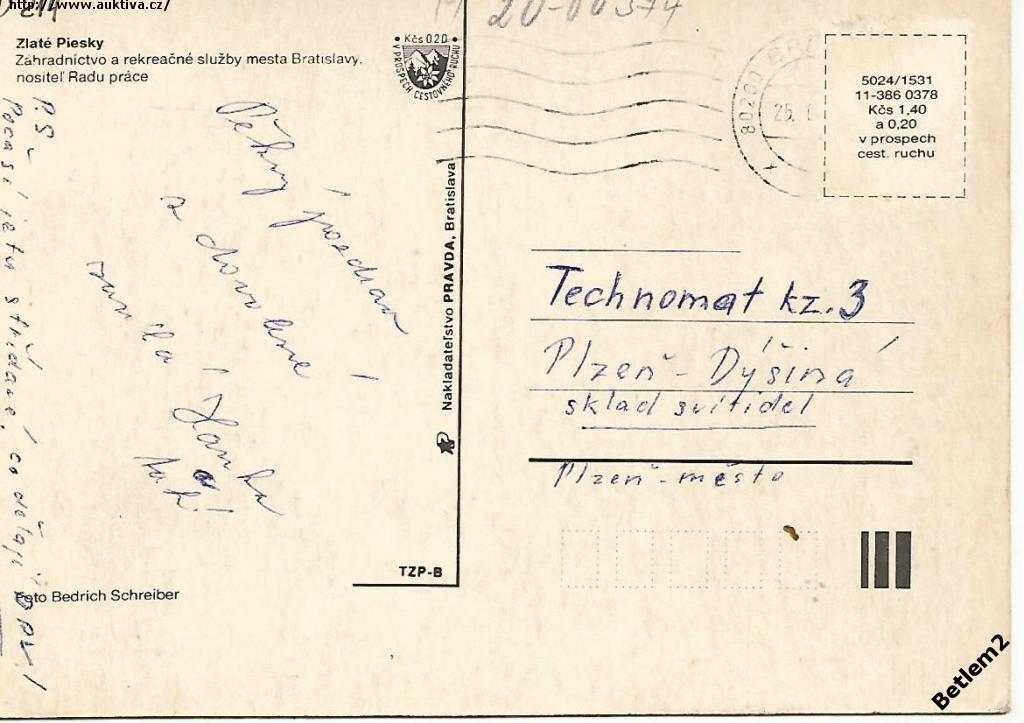 http://www.auktiva.cz/
Zlaté Piesky
Záhradníctvo a rekreačné služby mesta Bratislavy,
nositeľ Radu práce
Kčs 0.20
V PROSPECH CESTOVNÉHO RUCHU
80200 BRA
25.
5024/1531
11-386 0378
Kčs 1,40
a 0,20
v prospech
cest. ruchu
Pěkný pozdrav
z dovolené
Hanka
P.S.
Počasí je tu střídavé, co dělají
Nakladateľstvo PRAVDA, Bratislava
Technomat kz. 3
Plzeň - Dýšina
sklad svítidel
Plzeň - město
TZP-B
Foto Bedrich Schreiber
Betlem2